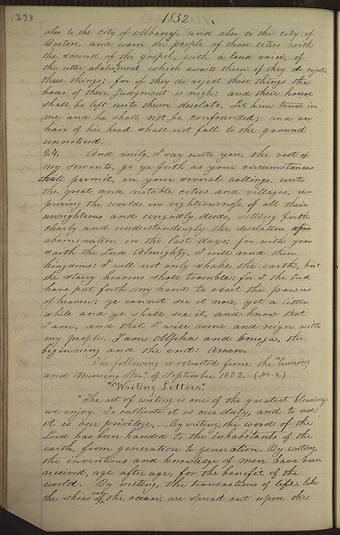 238
1832
also to the city of Albany, and also to the city of
Boston, and warn the people of those cities with
the sound of the gospel, with a loud voice, of
the utter abolishment which awaits them if they do reject
these things; for if they do reject these things the
hour of their judgment is nigh; and their house
shall be left unto them desolate. Let him trust in
me and he shall not be confounded; and an
hair of his head shall not fall to the ground
unnoticed.
24. And verily, I say unto you, the rest of
my servants, go ye forth as your circumstances
shall permit, in your several callings, unto
the great and notable cities and villages, re-
proving the world in righteousness, of all their
unrighteous and ungodly deeds, setting forth
clearly and understandingly the desolation of
abomination in the last days; for with you
saith the Lord Almighty, I will rend their
kingdoms: I will not only shake the earth, but
the starry heavens shall tremble: for I the Lord
have put forth my hand to exert the powers
of heaven; ye cannot see it now, yet a little
while and ye shall see it, and know that
I am, and that I will come and reign with
my people. I am Alpha and Omega, the
beginning and the end: Amen.
The following is extracted from the "Evening
and Morning Star" of September 1832. (No. 4.)
"Writing Letters.
"The art of writing is one of the greatest blessings
we enjoy. To cultivate it is our duty, and to use
it is our privilege,... By writing, the word of the
Lord has been handed to the inhabitants of the
earth, from generation to generation. By writing
the inventions and knowledge of men have been
received, age after age, for the benefit of the
world. By writing, the transactions of life, like
the skies over the ocean, are spread out upon the